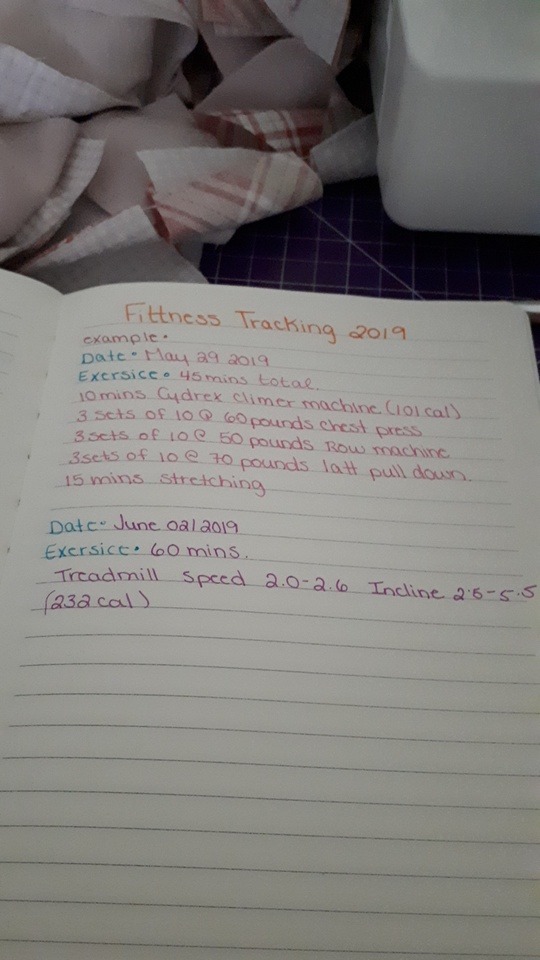 Fittness Tracking 2019
example.
Date. May 29 2019
Exersice. 45mins total.
10 mins Cydrex climer machine (101 cal)
3 sets of 10 @ 60 pounds chest press
3 sets of 10 @ 50 pounds Row machine
3 sets of 10 @ 70 pounds latt pull down.
15 mins stretching
Date. June 02/2019
Exersice. 60 mins.
Treadmill speed 2.0-2.6 Incline 2.5-5.5
(232 cal)